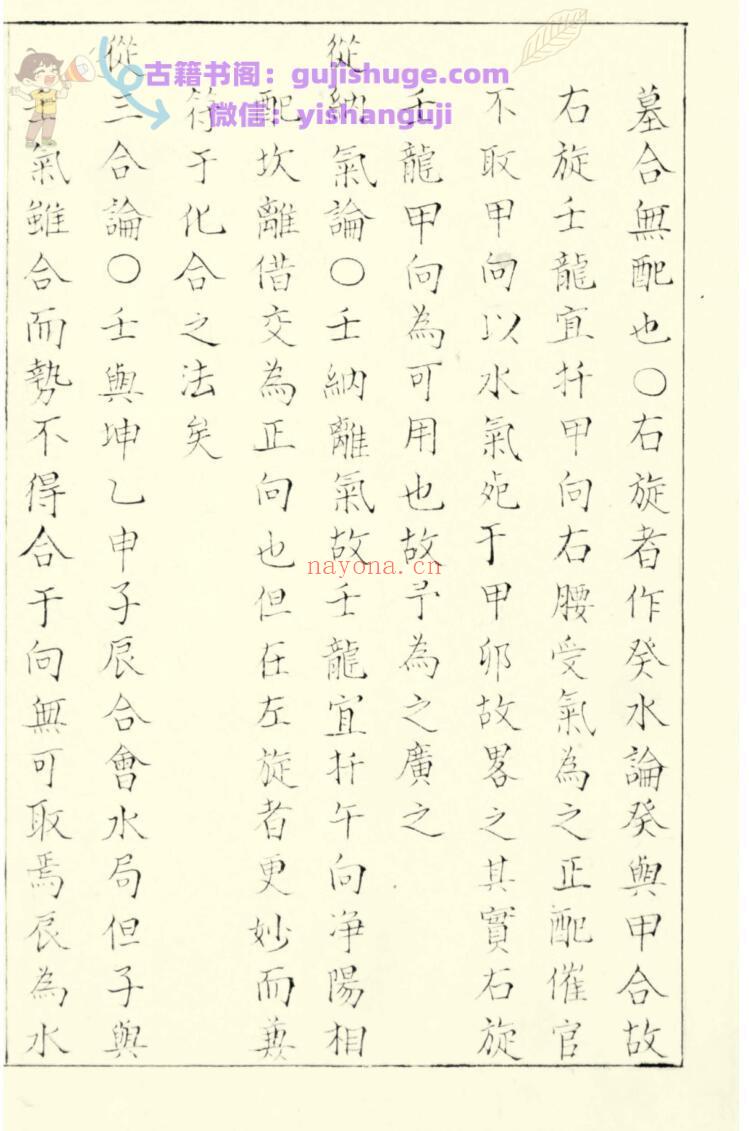 古籍书阁：gujishuge.com
微信：yishanguji
墓合無配也〇右旋者作癸水論癸與甲合故
右旋壬龍宜扦甲向右腰受氣為之正配催官
不取甲向以水氣死于甲卯故畧之其實右旋
壬龍甲向為可用也故予為之廣之
從納氣論〇壬納離氣故壬龍宜扦午向净陽相
配坎離借交為正向也但在左旋者更妙而兼
符于化合之法矣
從三合論〇壬與坤乙申子辰合會水局但子與
氣雖合而勢不得合于向無可取焉辰為水
nayona.cn